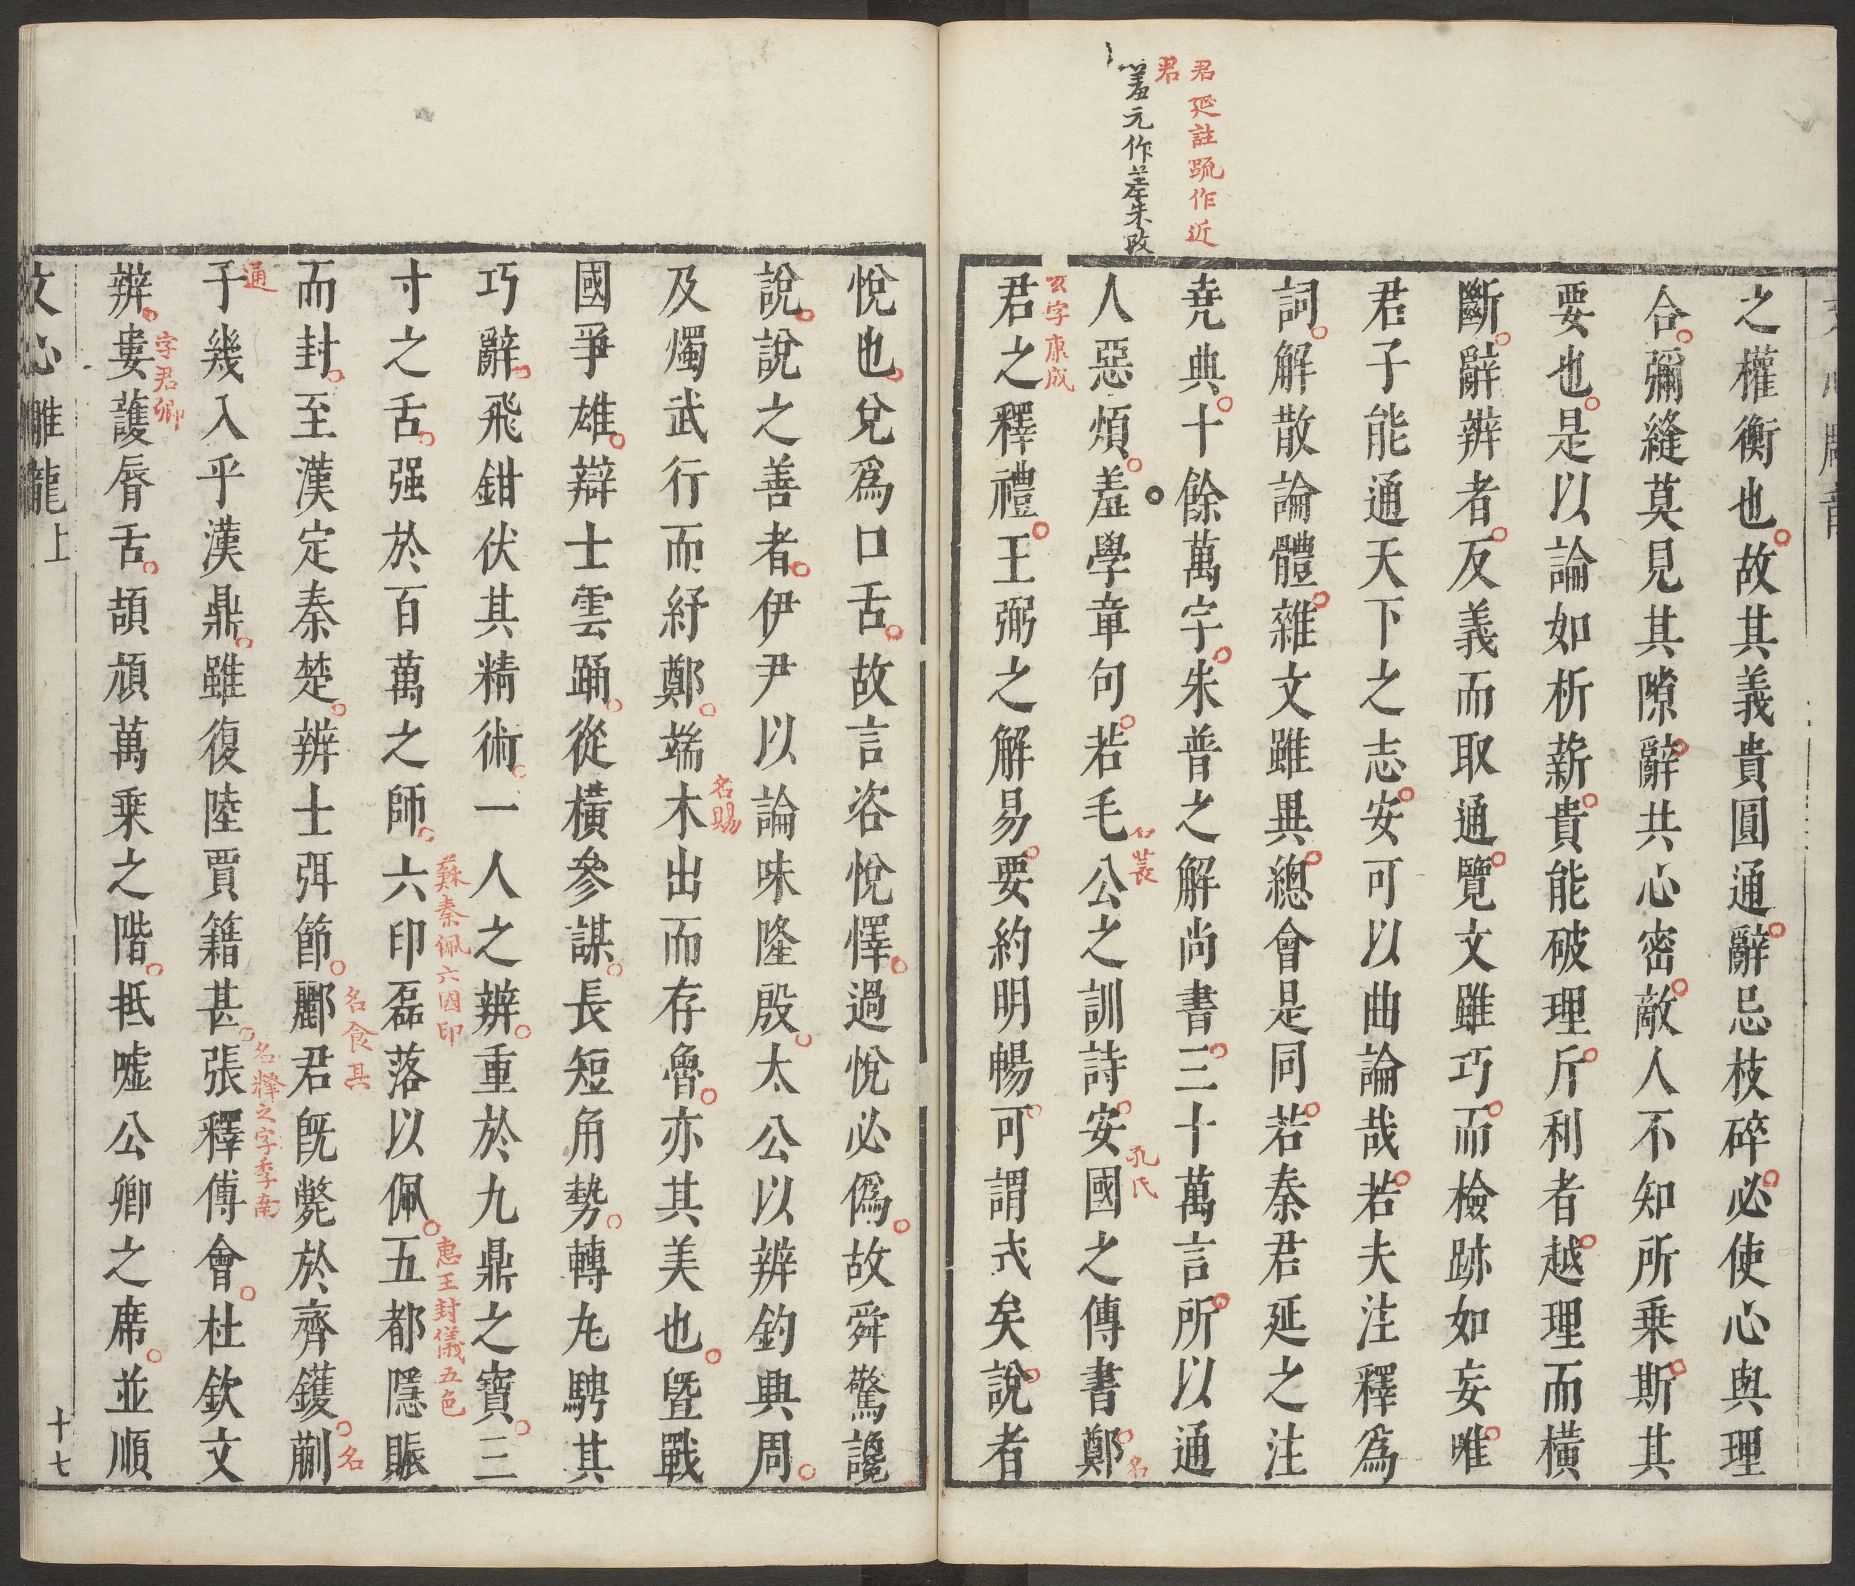 君
延註疏作近
君
羞元作差朱改
之權衡也故其義貴圓通辭忌枝碎必使心與理
合彌縫莫見其隙辭共心密敵人不知所乘斯其
要也是以論如析薪貴能破理斤利者越理而橫
斷辭辨者反義而取通覽文雖巧而檢跡如妄唯
君子能通天下之志安可以曲論哉若夫注釋爲
詞解散論體雜文雖異總會是同若秦君延之注
堯典十餘萬字朱普之解尚書三十萬言所以通
人惡煩羞學章句若毛公之訓詩安國之傳書鄭
名萇
孔氏
名
玄字康成
君之釋禮王弼之解易要約明暢可謂式矣說者
悅也兌爲口舌故言咨悅懌過悅必偽故舜驚讒
說說之善者伊尹以論味隆殷太公以辨釣興周
及燭武行而紓鄭端木出而存魯亦其美也曁戰
名賜
國爭雄辯士雲踊從橫參謀長短角勢轉丸騁其
巧辭飛鉗伏其精術一人之辨重於九鼎之寶三
寸之舌强於百萬之師六印磊落以佩五都隱賑
蘇秦佩六国印
惠王封儀五色
而封至漢定秦楚辨士弭節酈君旣斃於齊鑊蒯
名食其
名
通
子幾入乎漢鼎雖復陸賈籍甚張釋傅會杜欽文
名释之字季南
辨婁護脣舌頡頏萬乘之階抵噓公卿之席並順
字君卿
文心雕龍上
十七